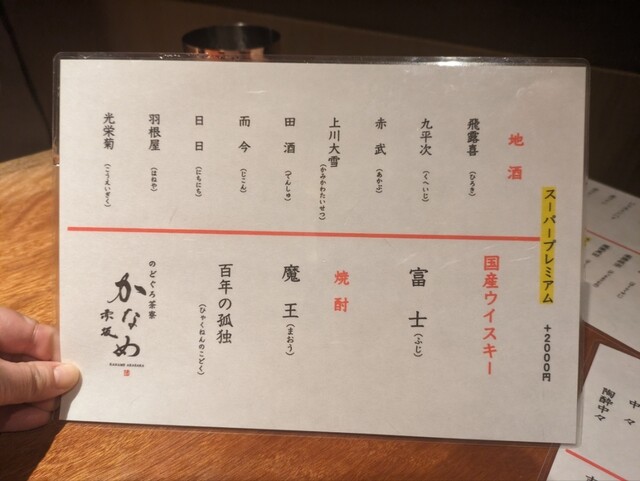 スーパープレミアム +2000円
地酒
飛露喜(ひろき)
九平次(くへいじ)
赤武(あかぶ)
上川大雪(かみかわたいせつ)
田酒(でんしゅ)
而今(じこん)
日日(にちにち)
羽根屋(はねや)
光栄菊(こうえいぎく)
国産ウイスキー
富士(ふじ)
焼酎
魔王(まおう)
百年の孤独(ひゃくねんのこどく)
のどぐろ茶寮
かなめ
赤坂
KANAME AKASAKA
中々
陶酔中々